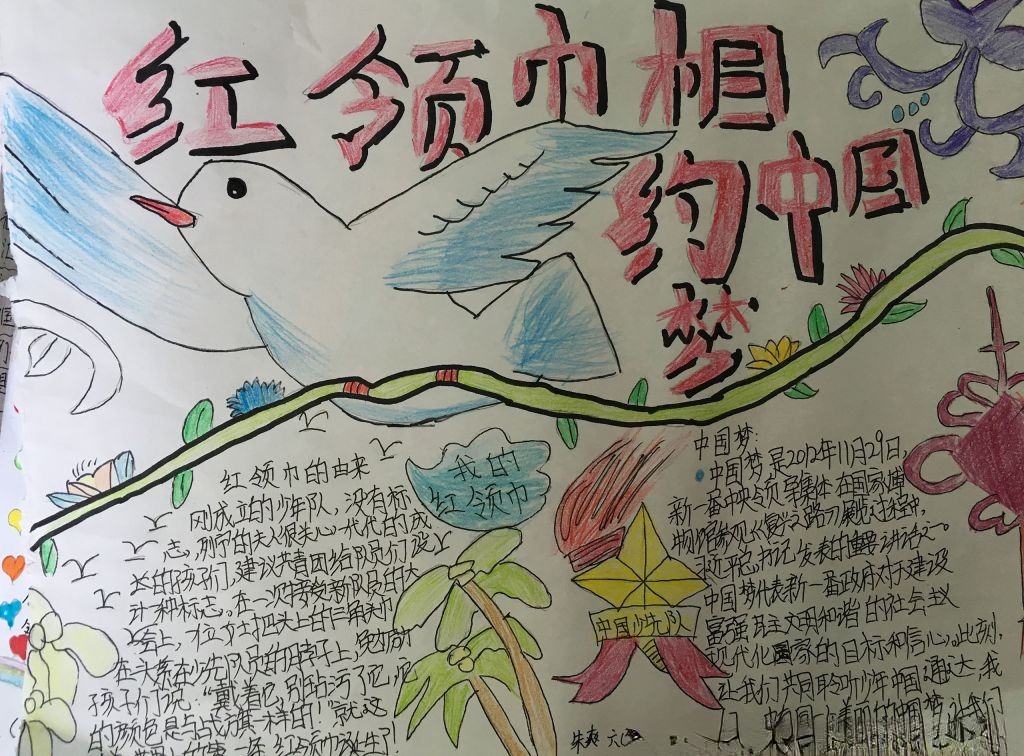 红领巾相
约中国
梦
红领巾的由来
刚成立的少年队，没有标
志，列宁的夫人很关心一代代的成
长的孩子们，建议共青团给队员们设
计一种标志。在一次接受新队员的大
会上，
在少先队员的脖子上，
孩子们说：“戴着它，别玷污了它，
的颜色是与战旗一样的！”就这
红领巾诞生了！
我的
红领巾
中国少先队
中国梦：
中国梦是2012年11月29日，
新一届中央领导集体在国家博
物馆参观《复兴之路》展览过程中，
习近平总书记发表的重要讲话。
中国梦代表新一届政府对于建设
富强民主文明和谐的社会主义
现代化国家的目标和信心。此刻，
让我们共同聆听少年中国通达，我
中国梦 让我们
朱爽